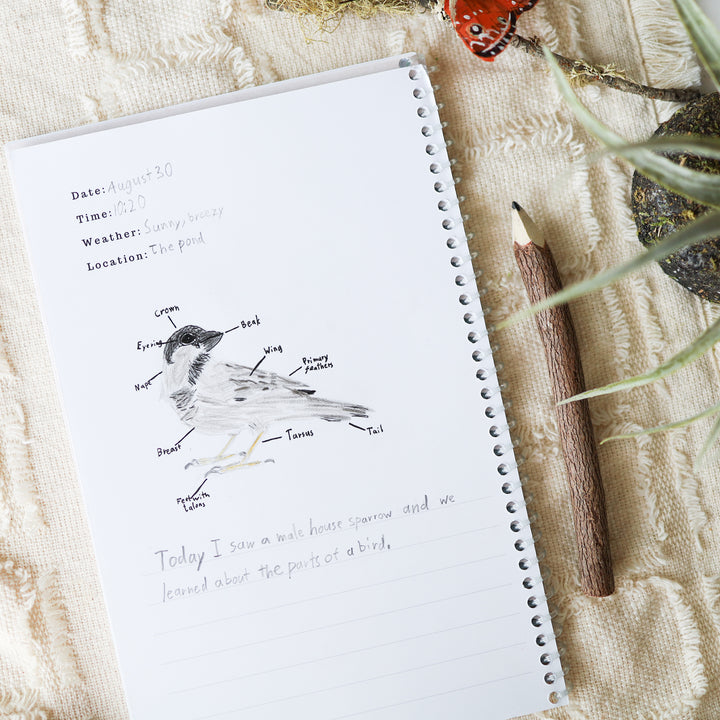 Date: August 30
Time: 10:20
Weather: Sunny, breezy
Location: The pond
Crown
Beak
Eyering
Wing
Primary
feathers
Nape
Breast
Tarsus
Tail
Feet with
talons
Today I saw a male house sparrow and we
learned about the parts of a bird.